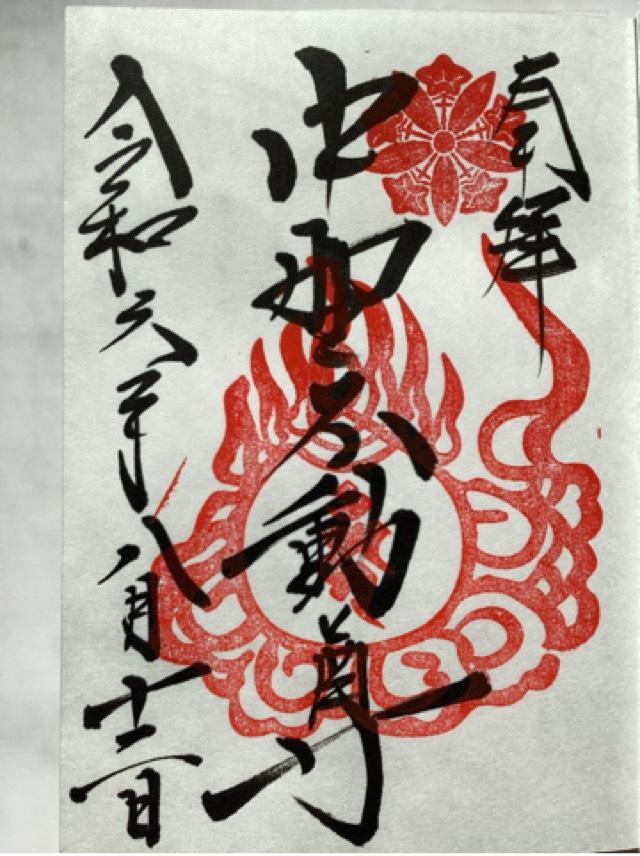 奉拝
中野不動尊
令和六年八月十二日